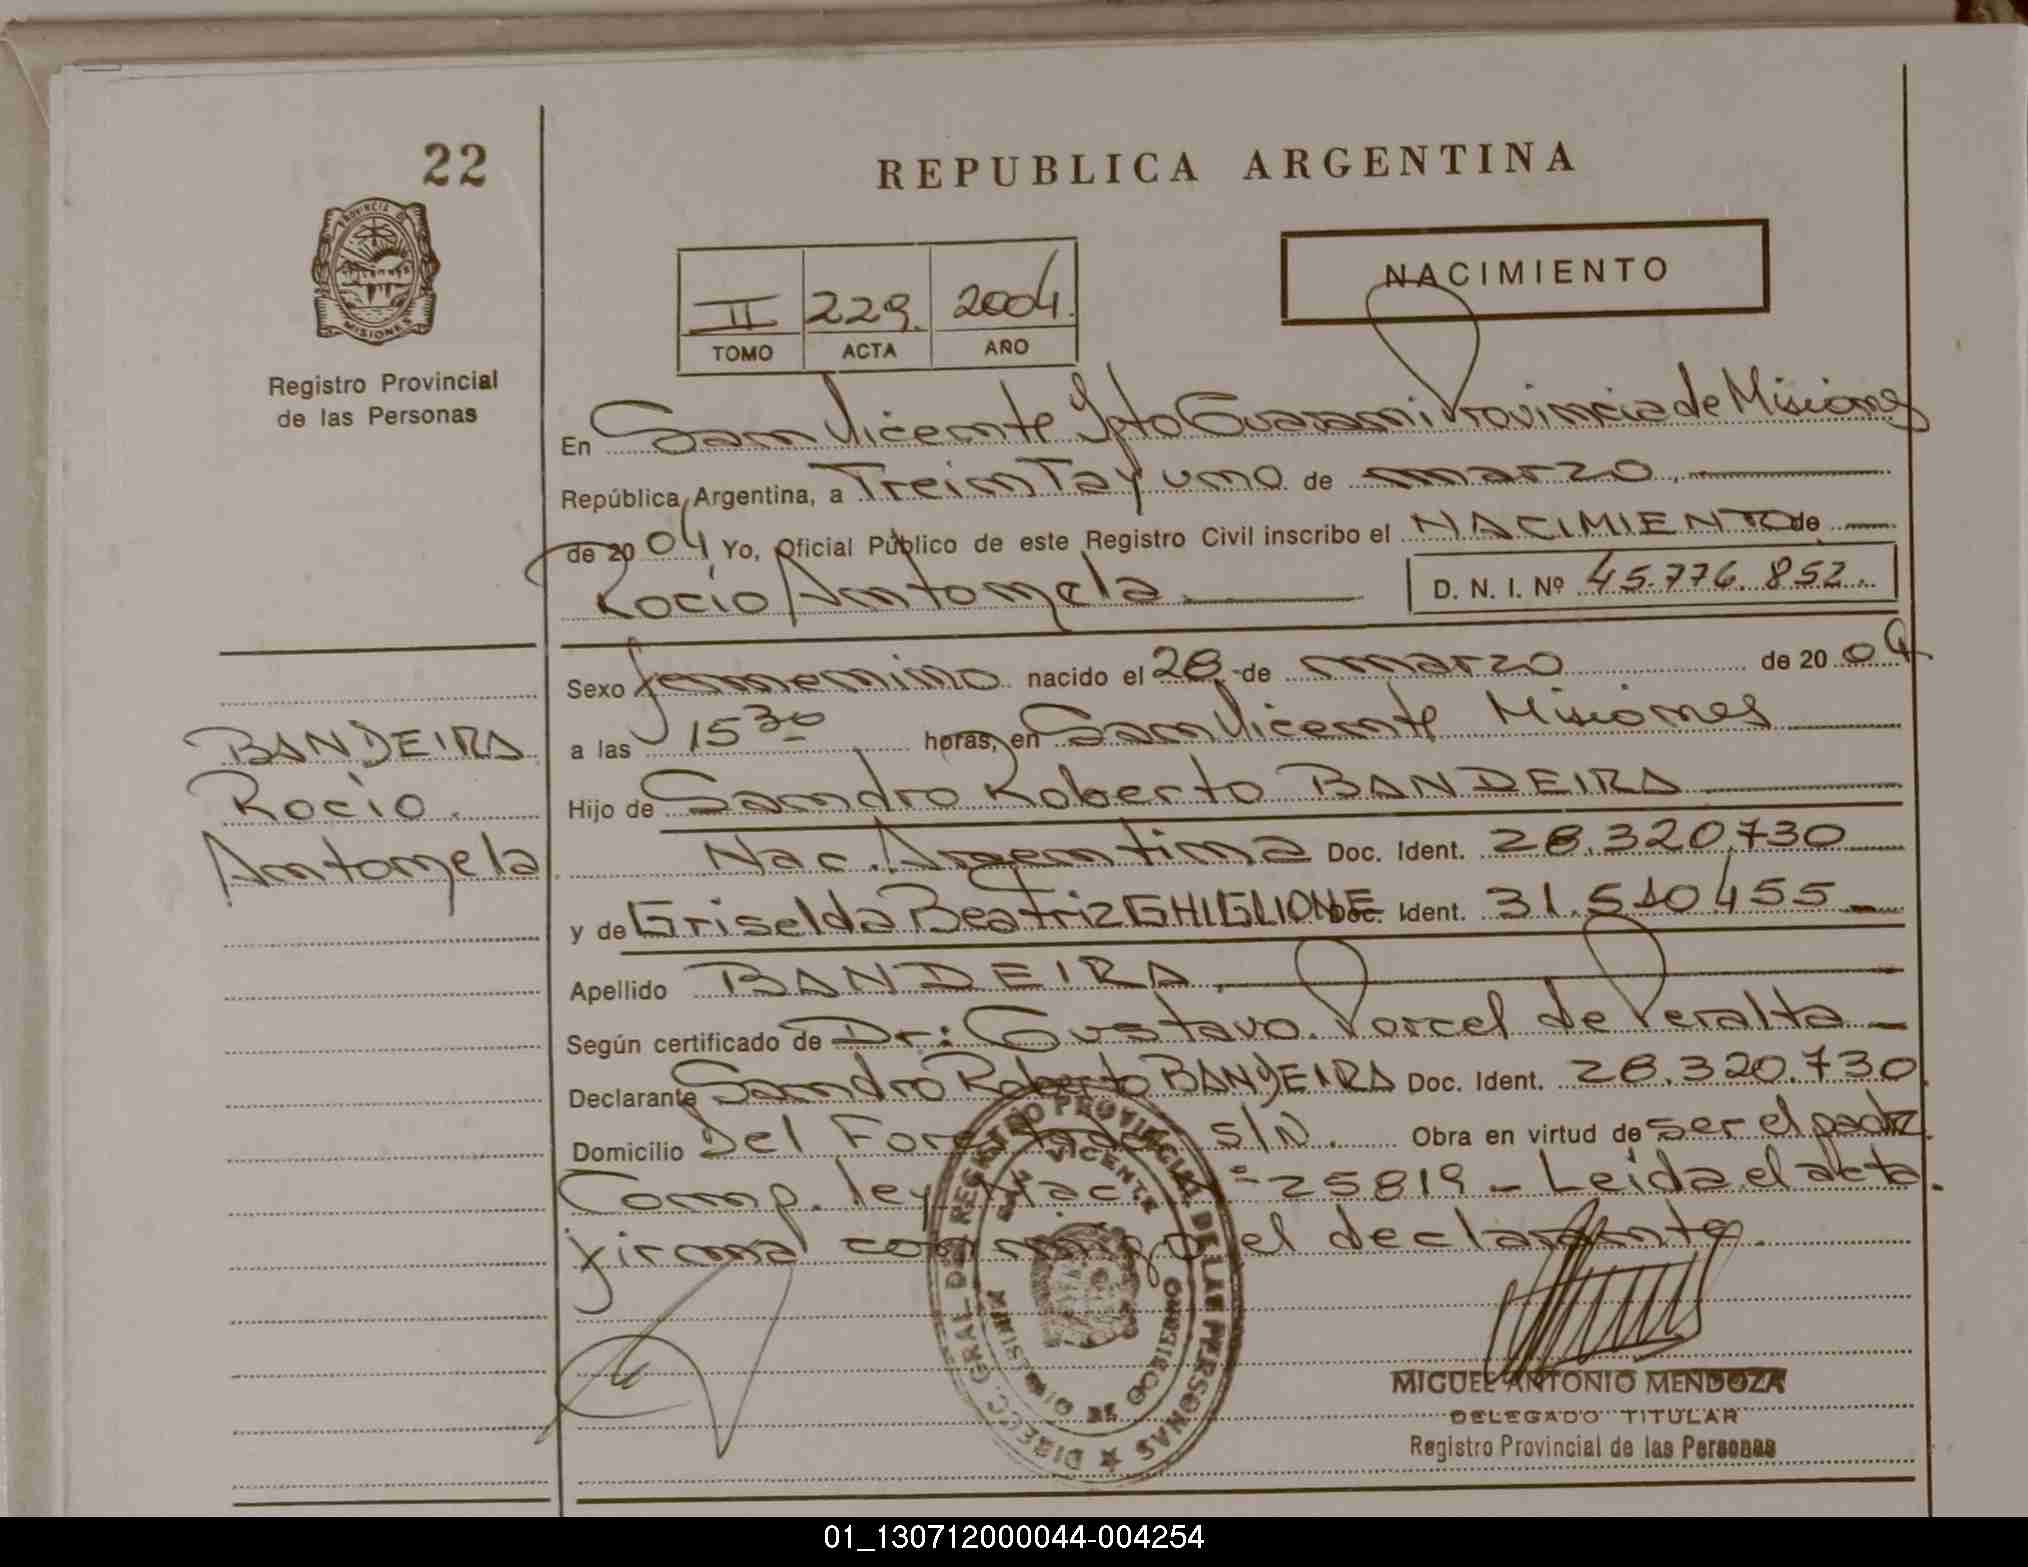 22
REPUBLICA ARGENTINA
PROVINCIA DE
MISIONES
Registro Provincial
de las Personas
II 229. 2004.
TOMO ACTA AÑO
NACIMIENTO
En San Vicente Dpto Guarani Provincia de Misiones
República Argentina, a Treinta y uno de marzo.
de 2004 Yo, Oficial Público de este Registro Civil inscribo el NACIMIENTO de
Rocio Antonela D. N. I. Nº 45.776.852
Sexo femenino nacido el 28 de marzo de 2004
a las 15 30 horas, en San Vicente Misiones
Hijo de Sandro Roberto BANDEIRA
Nac. Argentina Doc. Ident. 28.320.730
y de Griselda Beatriz GHIGLIONE Doc. Ident. 31.510.455
Apellido BANDEIRA.
Según certificado de Dr: Gustavo Porcel de Peralta
Declarante Sandro Roberto BANDEIRA Doc. Ident. 28.320.730
Domicilio Del Forestador s/N. Obra en virtud de ser el padre
Comp. ley Nac Nº 25819 - Leida el acta.
firma conmigo el declarante.
BANDEIRA
Rocio
Antonela
DIRECC. GRAL DE REGISTRO PROVINCIAL DE LAS PERSONAS
SAN VICENTE
MINISTERIO DE GOBIERNO
MIGUEL ANTONIO MENDOZA
DELEGADO TITULAR
Registro Provincial de las Personas
01_130712000044-004254